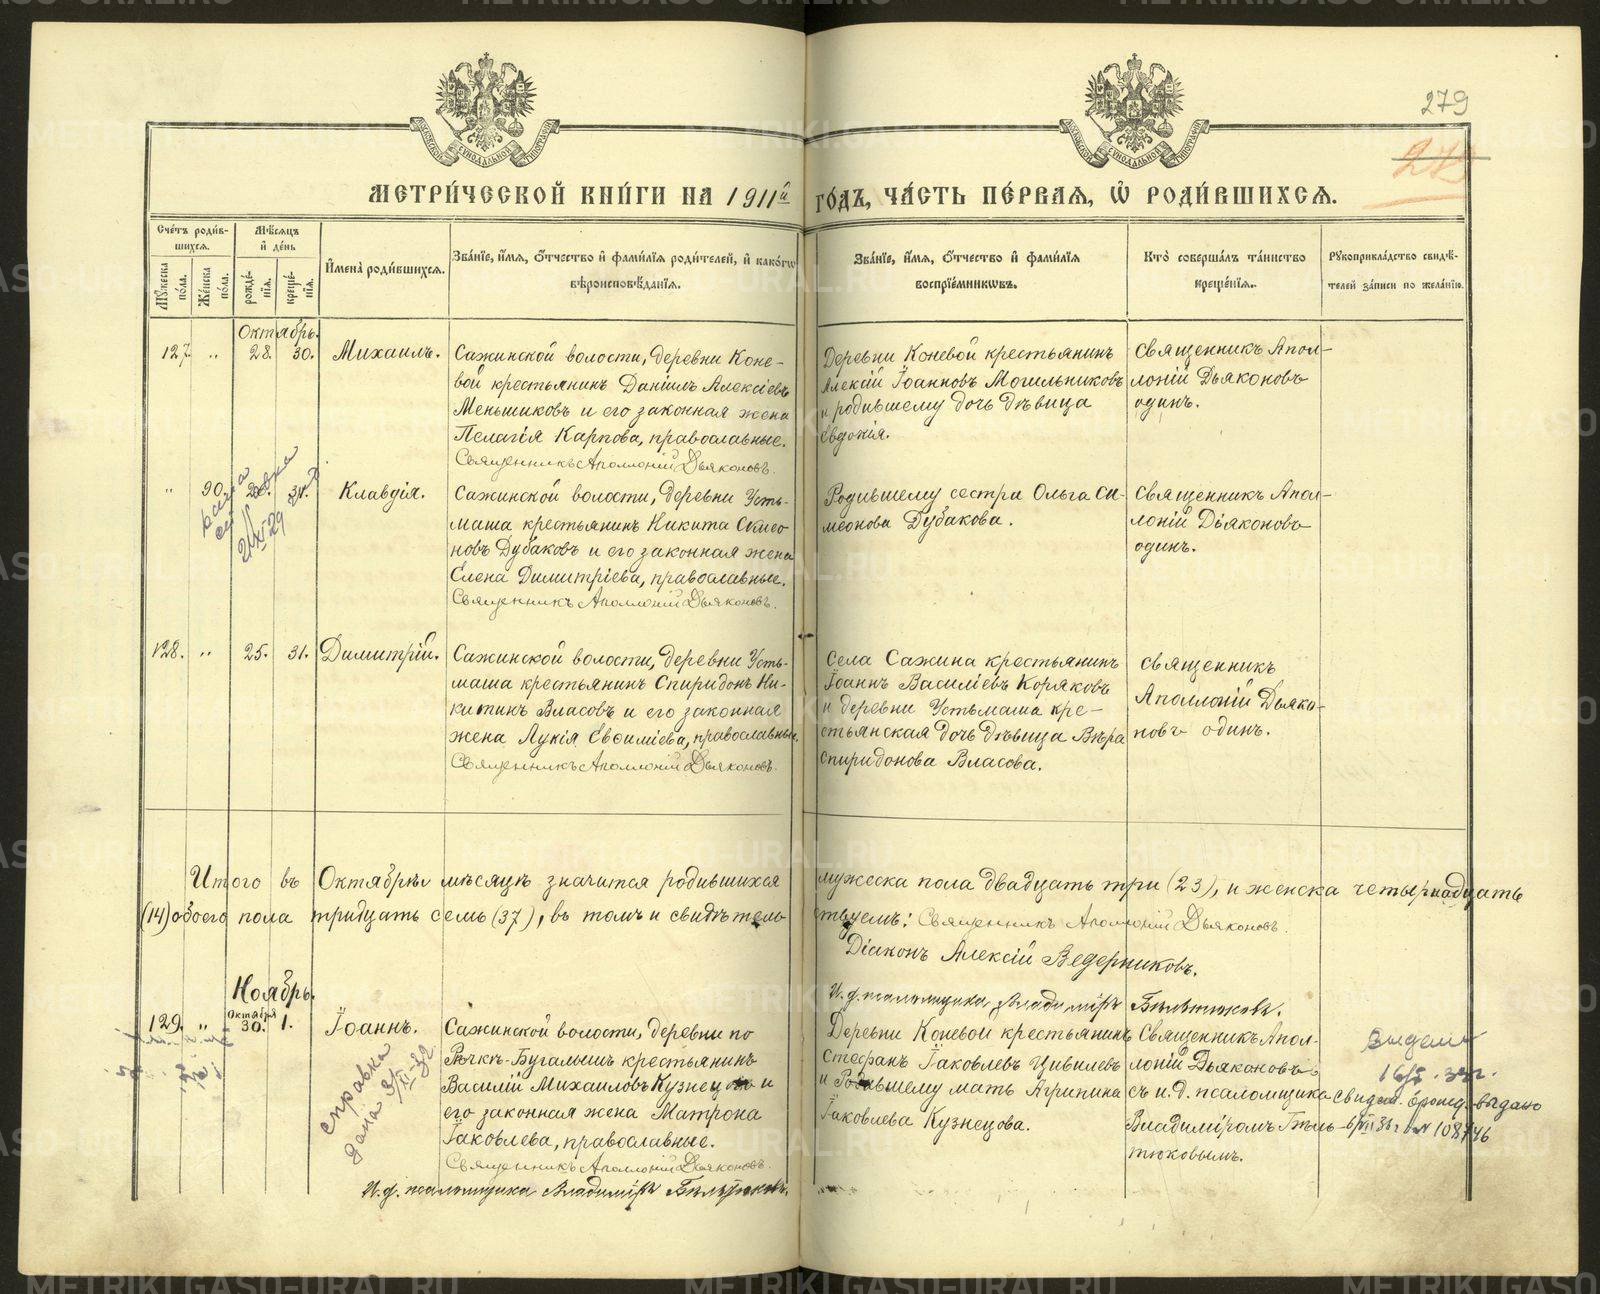 279
МЕТРИ́ЧЕСКОЙ КНИ́ГИ НА 1911й ГО́ДЪ, ЧА́СТЬ ПЕ́РВАЯ, Ѡ҆ РОДИ́ВШИХСЯ.
Сче́тъ роди́в-
шихся.
Мѣ́сяцъ
и҆ де́нь
Мꙋ́жеска по́ла.
Же́нска по́ла.
рожде́-
нїя.
креще́-
нїя.
И҆мена̀ роди́вшихся.
Зва́нїе, и҆́мя, ѻ҆́тчество и҆ фами́лїя роди́телей, и҆ како́гѡ
вѣроисповѣ́данїя.
Зва́нїе, и҆́мя, ѻ҆́тчество и҆ фами́лїя
воспрїе́мникѡвъ.
Кто̀ соверша́лъ та́инство
креще́нїя.
Рꙋкоприкла́дство свидѣ́-
телей за́писи по жела́нїю.
Октябрь.
127. " 28. 30. Михаилъ.
Сажинской волости, деревни Коне-
вой крестьянинъ Даніилъ Алексіевъ
Меньшиковъ и его законная жена
Пелагія Карпова, православные.
Священникъ Аполлоній Дьяконовъ.
Деревни Коневой крестьянинъ
Алексій Іоанновъ Могильниковъ
и родившему дочь дѣвица
Евдокія.
Священникъ Апол-
лоній Дьяконовъ
одинъ.
" 90. 31. Клавдія.
Сажинской волости, деревни Усть-
маша крестьянинъ Никита Симео-
новъ Дубаковъ и его законная жена
Елена Димитріева, православные.
Священникъ Аполлоній Дьяконовъ.
Родившему сестра Ольга Си-
меонова Дубакова.
Священникъ Апол-
лоній Дьяконовъ
одинъ.
128. " 25. 31. Димитрій.
Сажинской волости, деревни Усть-
маша крестьянинъ Спиридонъ Ни-
китинъ Власовъ и его законная
жена Лукія Евѳиміева, православные.
Священникъ Аполлоній Дьяконовъ.
Села Сажина крестьянинъ
Іоаннъ Василіевъ Коряковъ
и деревни Устьмаша кре-
стьянская дочь дѣвица Вѣра
Спиридонова Власова.
Священникъ
Аполлоній Дьяко-
новъ одинъ.
Итого въ Октябрѣ мѣсяцѣ значится родившихся мужеска пола двадцать три (23), и женска четырнадцать
(14) обоего пола тридцать семь (37), въ томъ и свидѣтель-
ствуемъ: Священникъ Аполлоній Дьяконовъ.
Діаконъ Алексій Ведерниковъ.
И. ф. псаломщика Владиміръ Бѣльтюковъ.
Ноябрь.
Октября
129. " 30. 1. Іоаннъ.
справка
дана
Сажинской волости, деревни по
Рѣчкѣ-Бугалышъ крестьянинъ
Василій Михаиловъ Кузнецовъ и
его законная жена Матрона
Іаковлева, православные.
Священникъ Аполлоній Дьяконовъ.
И. ф. псаломщика Владиміръ Бѣльтюковъ.
Деревни Коневой крестьянинъ
Стефанъ Іаковлевъ Цивилевъ
и Родившему мать Агрипина
Іаковлева Кузнецова.
Священникъ Апол-
лоній Дьяконовъ
съ и.д. псаломщика
Владиміромъ Бѣль-
тюковымъ.
выдано
METRIKI.GASO-URAL.RU